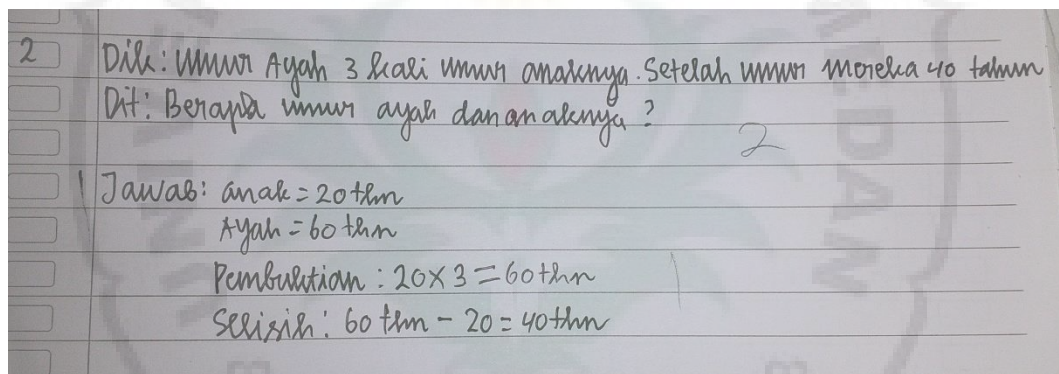 2 Dik: Umur Ayah 3 kali umur anaknya. Setelah umur mereka 40 tahun
Dit: Berapa umur ayah dan anaknya?
2
Jawab: anak = 20 thn
Ayah = 60 thn
Pembuktian : 20 x 3 = 60 thn
Selisih : 60 thn - 20 = 40 thn